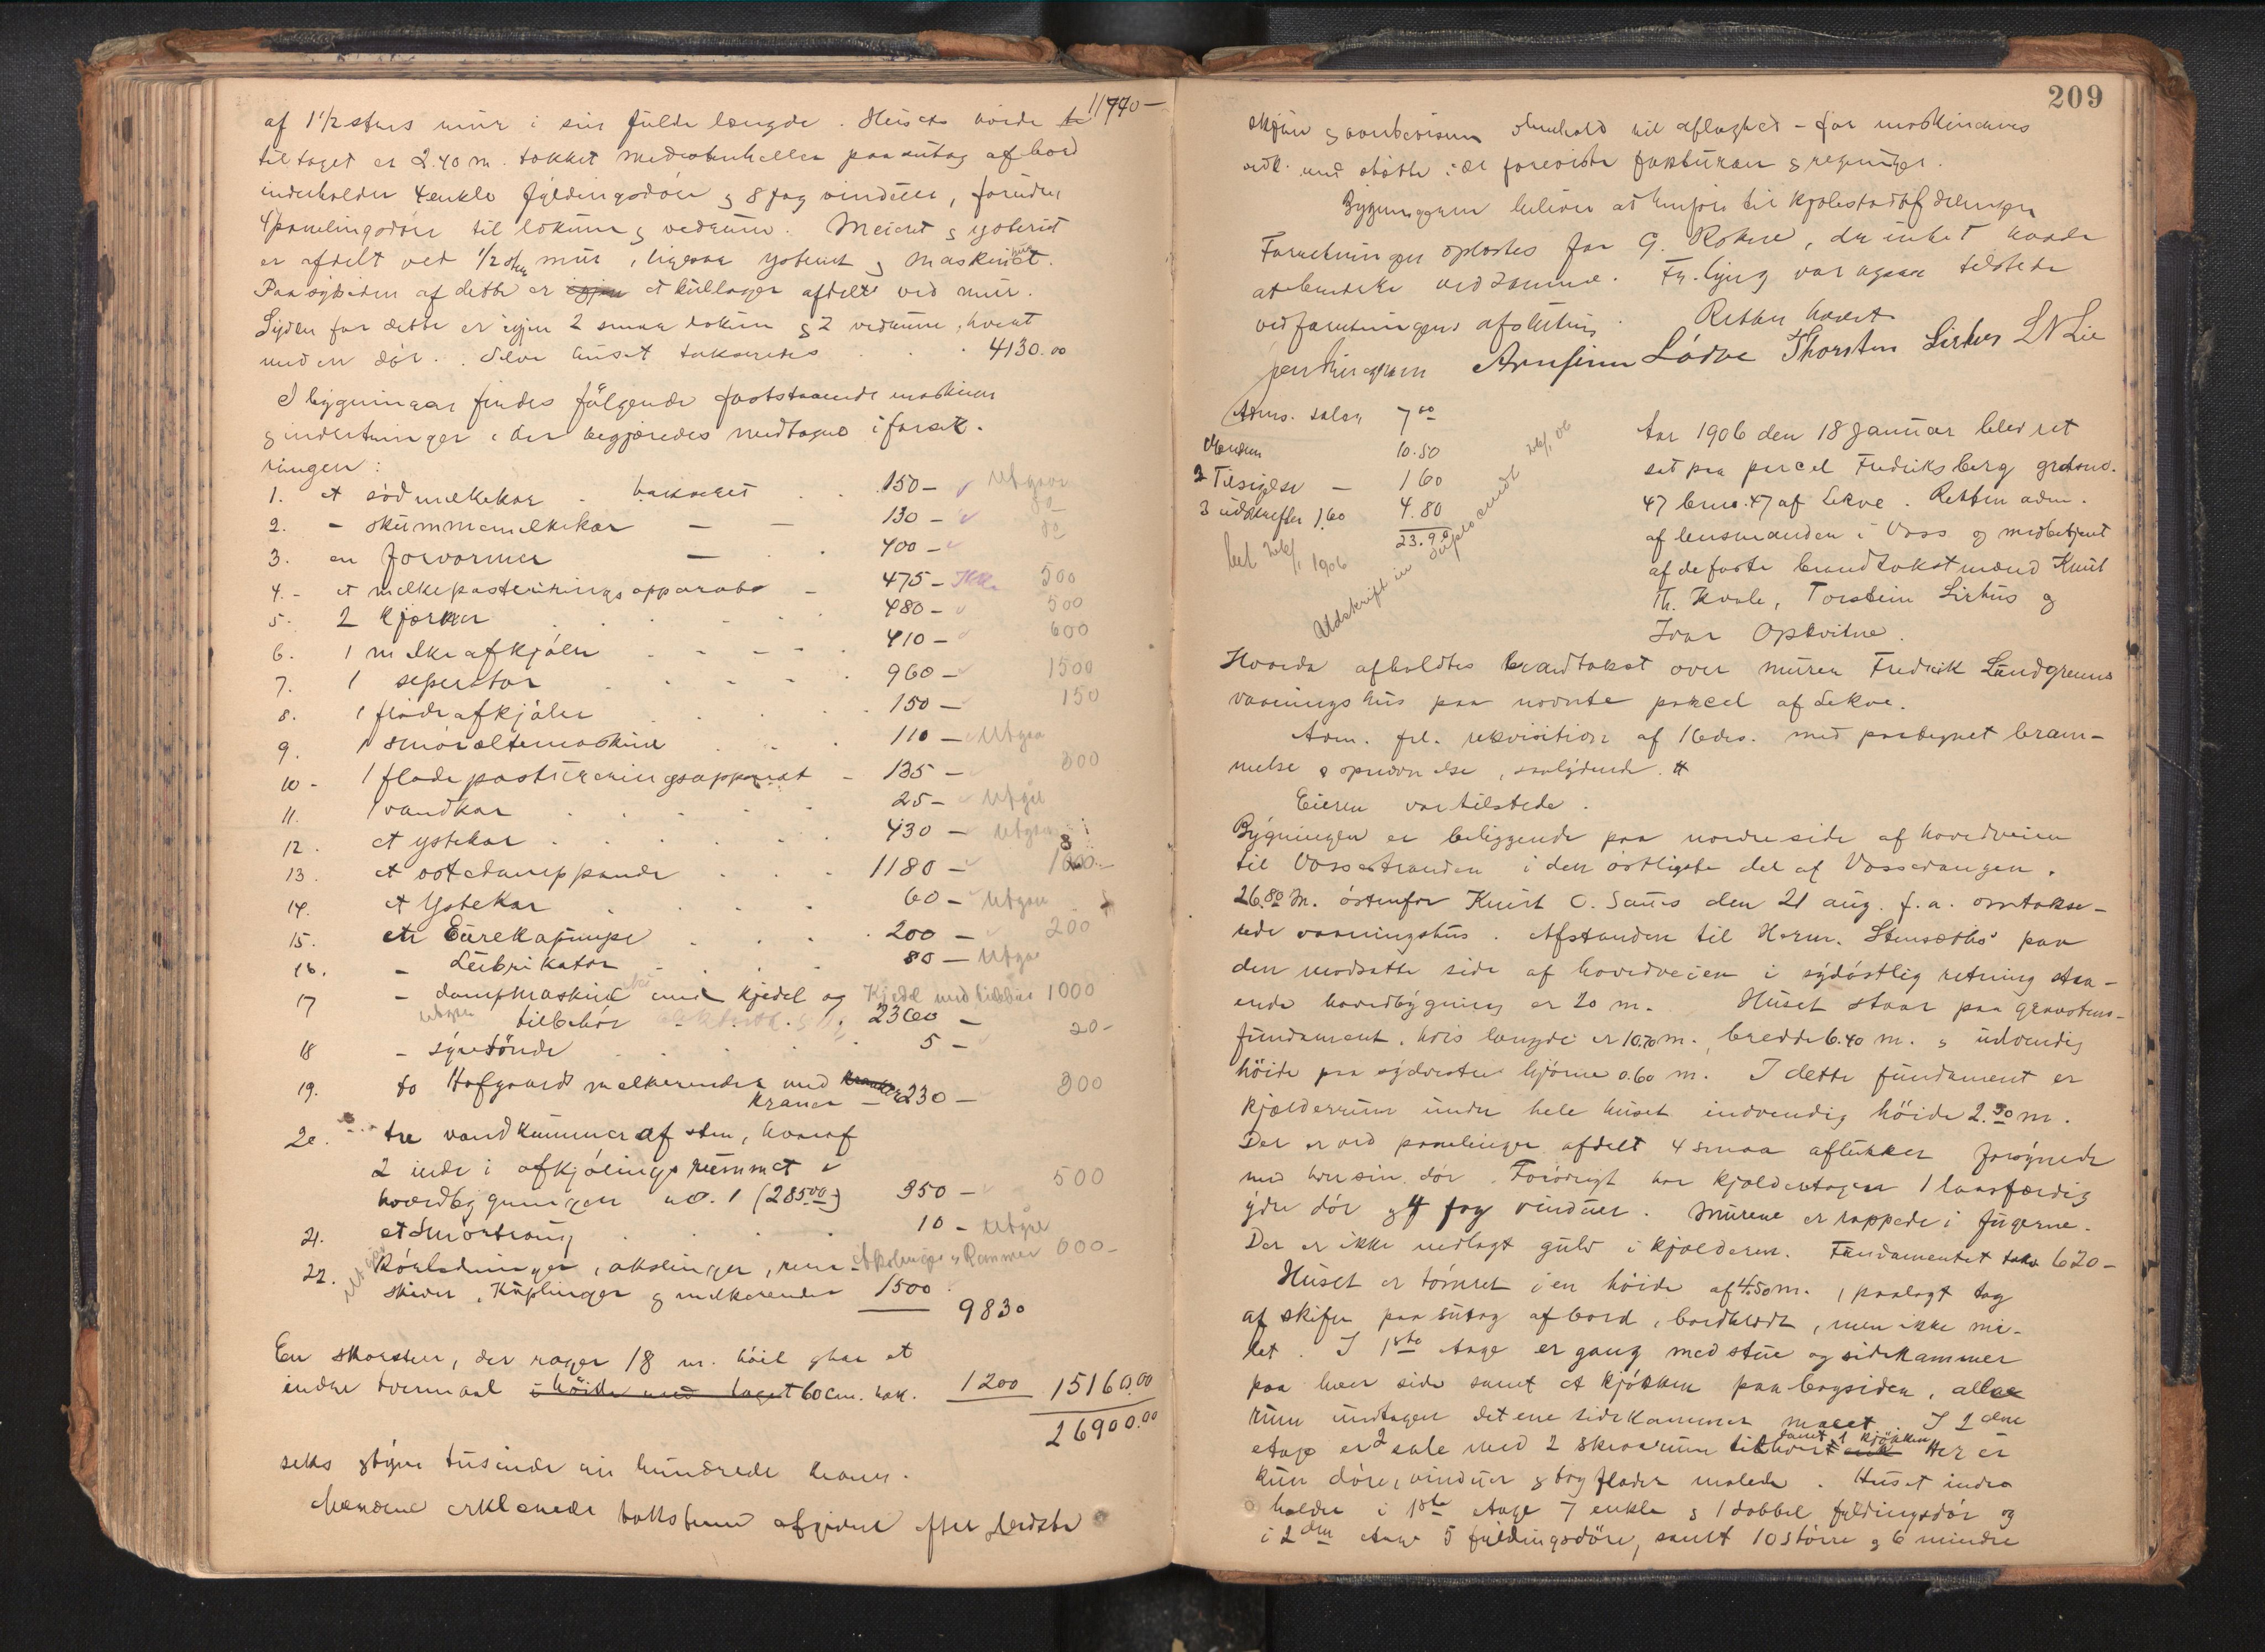 11770 —
af 1½ stens mur i sin fulde længde. Husets høide
til taget er 2.40 m. tækket med stenheller paa sutag af bord
indeholder 4 enkle fyldingsdøre & 8 fag vinduer, foruden
4 panelingsdøre til lokum & vedrum. Meieriet & ysteriet
er afdelt ved ½ stens mur, ligesaa ysteriet & maskin
Paa sydsiden af dette er et kullager afdelt ved mur.
Syden for dette er igjen 2 smaa lokum & 2 vedrum, hvert
med en dør. Selve huset takseredes 4130.00
I bygningen findes følgende faststaaende maskiner
& indretninger, der begjæredes medtagne i forsik-
ringen:
1. et sødmelkekar . takseret . . 150 — Utgaar
2. — skummemelkekar — — 130 — do
3. en forvarmer — . . 400 — do
4. — et melkepasteriseringsapparat — 475 — Ikke 500
5. 2 kjærner . . . 480 — 500
6. 1 melkeafkjøler . . . 410 — 600
7. 1 seperator . . . 960 — 1500
8. 1 flødeafkjøler . . . 150 — 150
9. 1 smøræltemaskine . . 110 — Utgaa
10 — 1 flødepasteuriseringsapparat — 135 — 300
11. 1 vandkar . . . 25 — Utgaa
12. et ystekar . . . 430 — Utgaa
13. et ostedamppande . . . 1180 —
14. et Ystekar . . . 60 — Utgaa
15. en Eurekapumpe . . . 200 — 200
16. — Lubrikator . . . 80 — Utgaa
17 — dampmaskine med kjedel og Kjedel med tilbehør 1000
tilbehør 2300 —
18 — syretønde . . . 5 — 20 —
19. to Hofgaards melkerender med
Kraner — 230 — 300
20. tre vandkummer af sten, hvoraf
2 inde i afkjølingsrummet i
hovedbygningen no. 1 (285.00) 350 — 500
21. et smørtraug . . . 10 — Utgaar
22. Rørledninger, akslinger, rem- Akslinger & Remmer 600 —
skiver, Kuplinger & melkerender 1500
9830
En skorsten, der rager 18 m. høit & har et
indre tvermaal i høide med taget 60 cm. tak. 1200 15160.00
26900.00
seks & tyve tusinde ni hundrede kroner.
Mændene erklærede takstene afgivne efter bedste
209
skjøn & overbevisning i henhold til aflagt ed — for maskinernes
vedk. med støtte i de foreviste fakturaer & regninger.
Bygningerne belives at henføres til Kjøbestadafdelingen
Forretningen oplæstes for G. Rokne, der intet havde
at bemærke ved samme. Fr. Ljug var ogsaa tilstede
ved forretningens afslutning. Retten hævet
Arnfinn Lødve Thorsten Lirhus L N Lie
Adms. salær 7.00
Mænden 10.50
2 Tilsigelse — 1 60
3 udskrifter 1.60 4.80
23.90
bet 26/1 1906
Udskrift in duplo sendt 26/1 06
Aar 1906 den 18 Januar blev ret
sat paa parcel Fredriksberg grdsno.
47 brno. 47 af Lekve. Retten adm.
af lensmanden i Voss og medbetjent
af de faste brandtakstmænd Knut
Th. Kvale, Torstein Lirhus og
Ivar Opkvitne.
Hvorda afholdtes brandtakst over murer Fredrik Lundgreens
vaaningshus paa nævnte parcel af Lekve.
Adm. frl. rekvisition af 16 ds. med paategnet beram-
melse & opnævnelse, saalydende. #
Eieren var tilstede.
Bygningen er beliggende paa nordre side af hovedveien
til Vossestranden i den østligste del af Vossevangen,
26.80 m. østenfor Knut O. Saues den 21 aug. f.a. omtakse-
rede vaaningshus. Afstanden til Herm. Stensæths paa
den modsatte side af hovedveien i sydøstlig retning staa-
ende hovedbygning er 20 m. Huset staar paa graastens-
fundament, hvis længde er 10.70 m., bredde 6.40 m. & udvendig
høide paa sydvestre hjørne 0.60 m. I dette fundament er
kjælderrum under hele huset indvendig høide 2.30 m.
Der er ved panelinger afdelt 4 smaa aflukker forsynede
med hver sin dør. Forøvrigt har kjælderetagen 1 laasfærdig
ydre dør & 4 fag vinduer. Murene er rappede i fugerne.
Der er ikke nedlagt gulv i kjælderen. Fundamentet taks 620 —
Huset er tømret i en høide af 4.50 m., paalagt tag
af skifer paa sutag af bord, bordklædt, men ikke ma-
let. I 1ste etage er gang med stue og sidekammer
paa hver side samt et kjøkken paa bagsiden, alle
rum undtagen det ene sidekammer malet. I 2den
etage er 2 sale med 2 skraarum til hver samt 1 kjøkken Her er
kun døre, vinduer & tagflader malede. Huset inde-
holder i 1ste etage 7 enkle & 1 dobbel fyldingsdør og
i 2den etage 5 fyldingsdøre, samt 10 større & 6 mindre